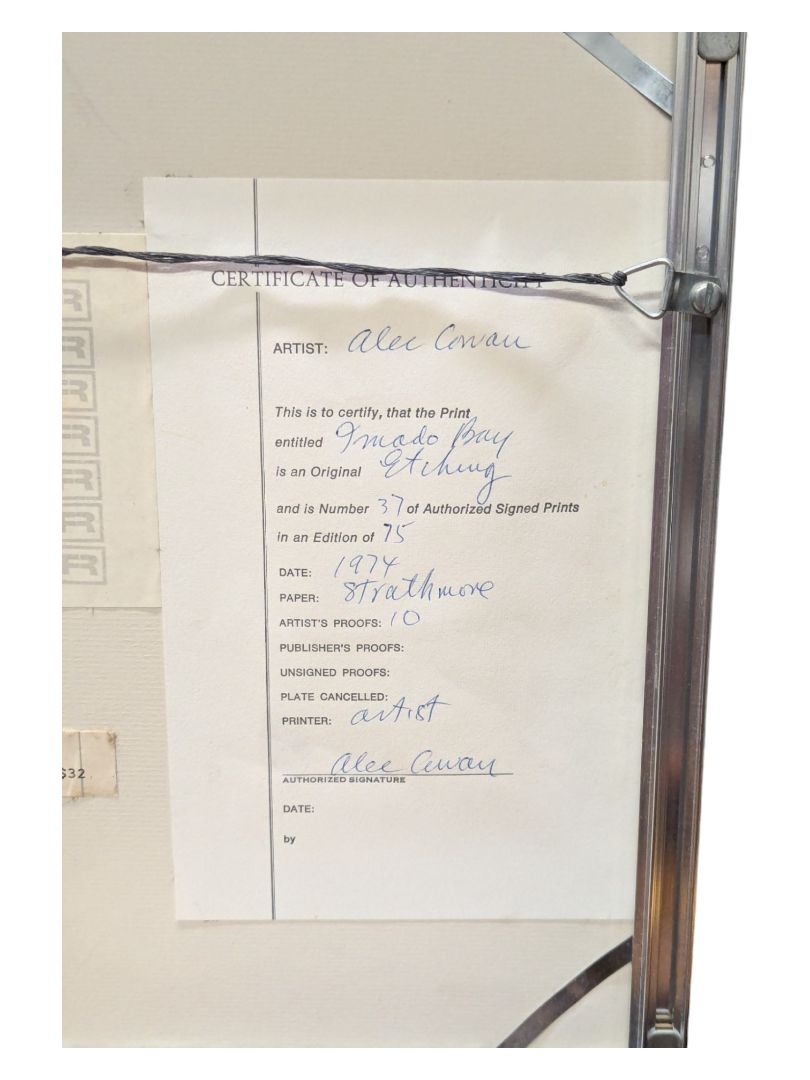 CERTIFICATE OF AUTHENTICITY
ARTIST: Alec Cowan
This is to certify, that the Print
entitled Imado Bay
is an Original Etching
and is Number 37 of Authorized Signed Prints
in an Edition of 75
DATE: 1974
PAPER: Strathmore
ARTIST'S PROOFS: 10
PUBLISHER'S PROOFS:
UNSIGNED PROOFS:
PLATE CANCELLED:
PRINTER: artist
Alec Cowan
AUTHORIZED SIGNATURE
DATE:
by
$32